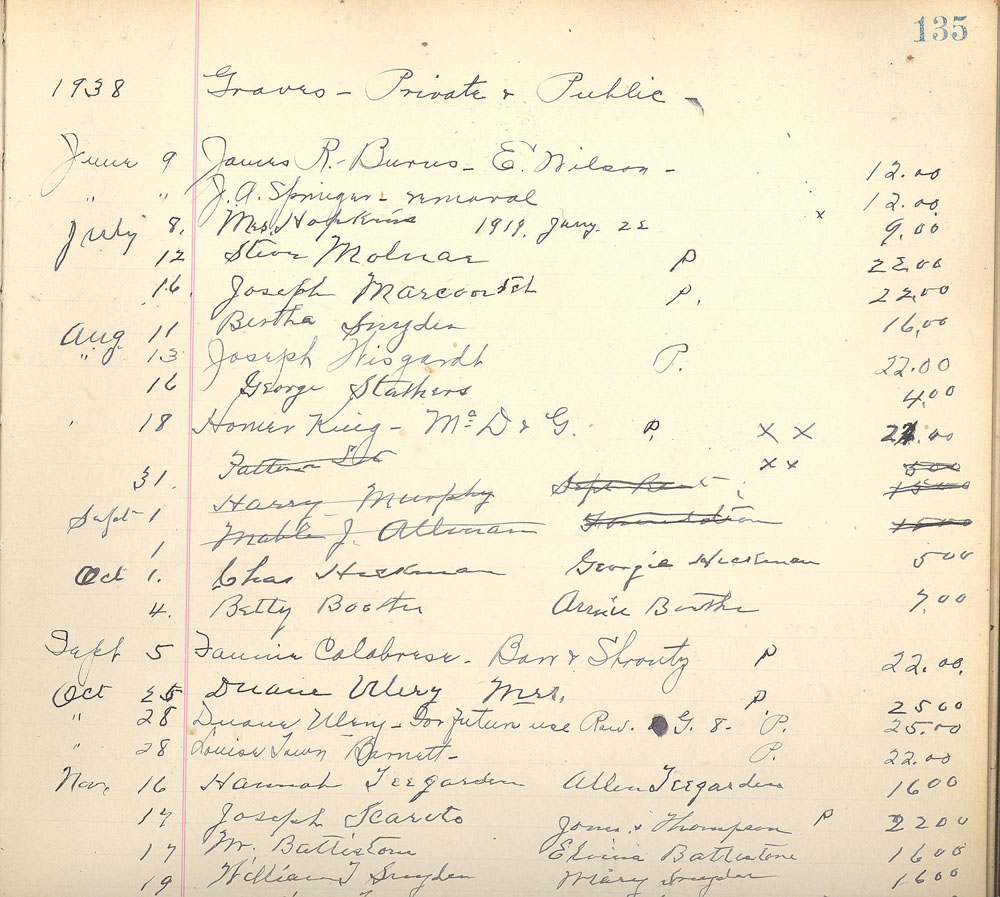 135
1938 Graves - Private & Public -
June 9 James R. Burns - E. Wilson - 12.00
" " J. A. Springer - removal x 12.00
July 8. Mrs. Hopkins 1919. Jany. 22 9.00
12 Steve Molnar P 22.00
16. Joseph Marcovitch P. 22.00
Aug 11 Bertha Snyder 16.00
" 13 Joseph Wisgardt P. 22.00
16 George Stathers 4.00
" 18 Homer King - Mc D & G. P. X X 22.00
31. xx 500
Harry Murphy Sept Rent 1500
Sept 1 Mable J. Allman Foundation 1500
1
Oct 1. Chas Heckman Georgie Heckman 500
4. Betty Boothe Annie Boothe 7.00
Sept 5 Fannie Calabrese - Barr & Shrontz P 22.00
Oct 25 Duane Ulery Mrs. P. 2500
" 28 Duane Ulery - for future use Row. G. 8. P. 25.00
" 28 Louise Barnett - P. 22.00
Nov. 16 Hannah Teegarden Allen Teegarden 1600
17 Joseph Scarito Jones & Thompson P 2200
17 Mr. Battistone Elvina Battistone 1600
19 William J Snyder Mary Snyder 1600